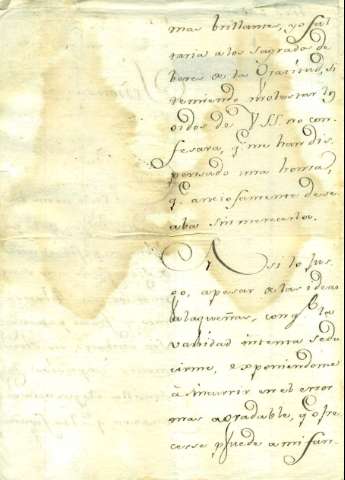 mas brillante, yo fal
taria a los sagrados de
beres de la Gratitud, si
temiendo molestar los
oidos de VSS. no con
fesara, q.e me han dis
pensado una honra,
q.e anciosamente dese
aba sin merecerla.
Asi lo juz
go, apesar de las ideas
alagueñas, con q.e la
vanidad intenta sedu
cirme, exponiendome
à incurrir en el error
mas agradable, q.e ofre
cerse puede a mi fan-